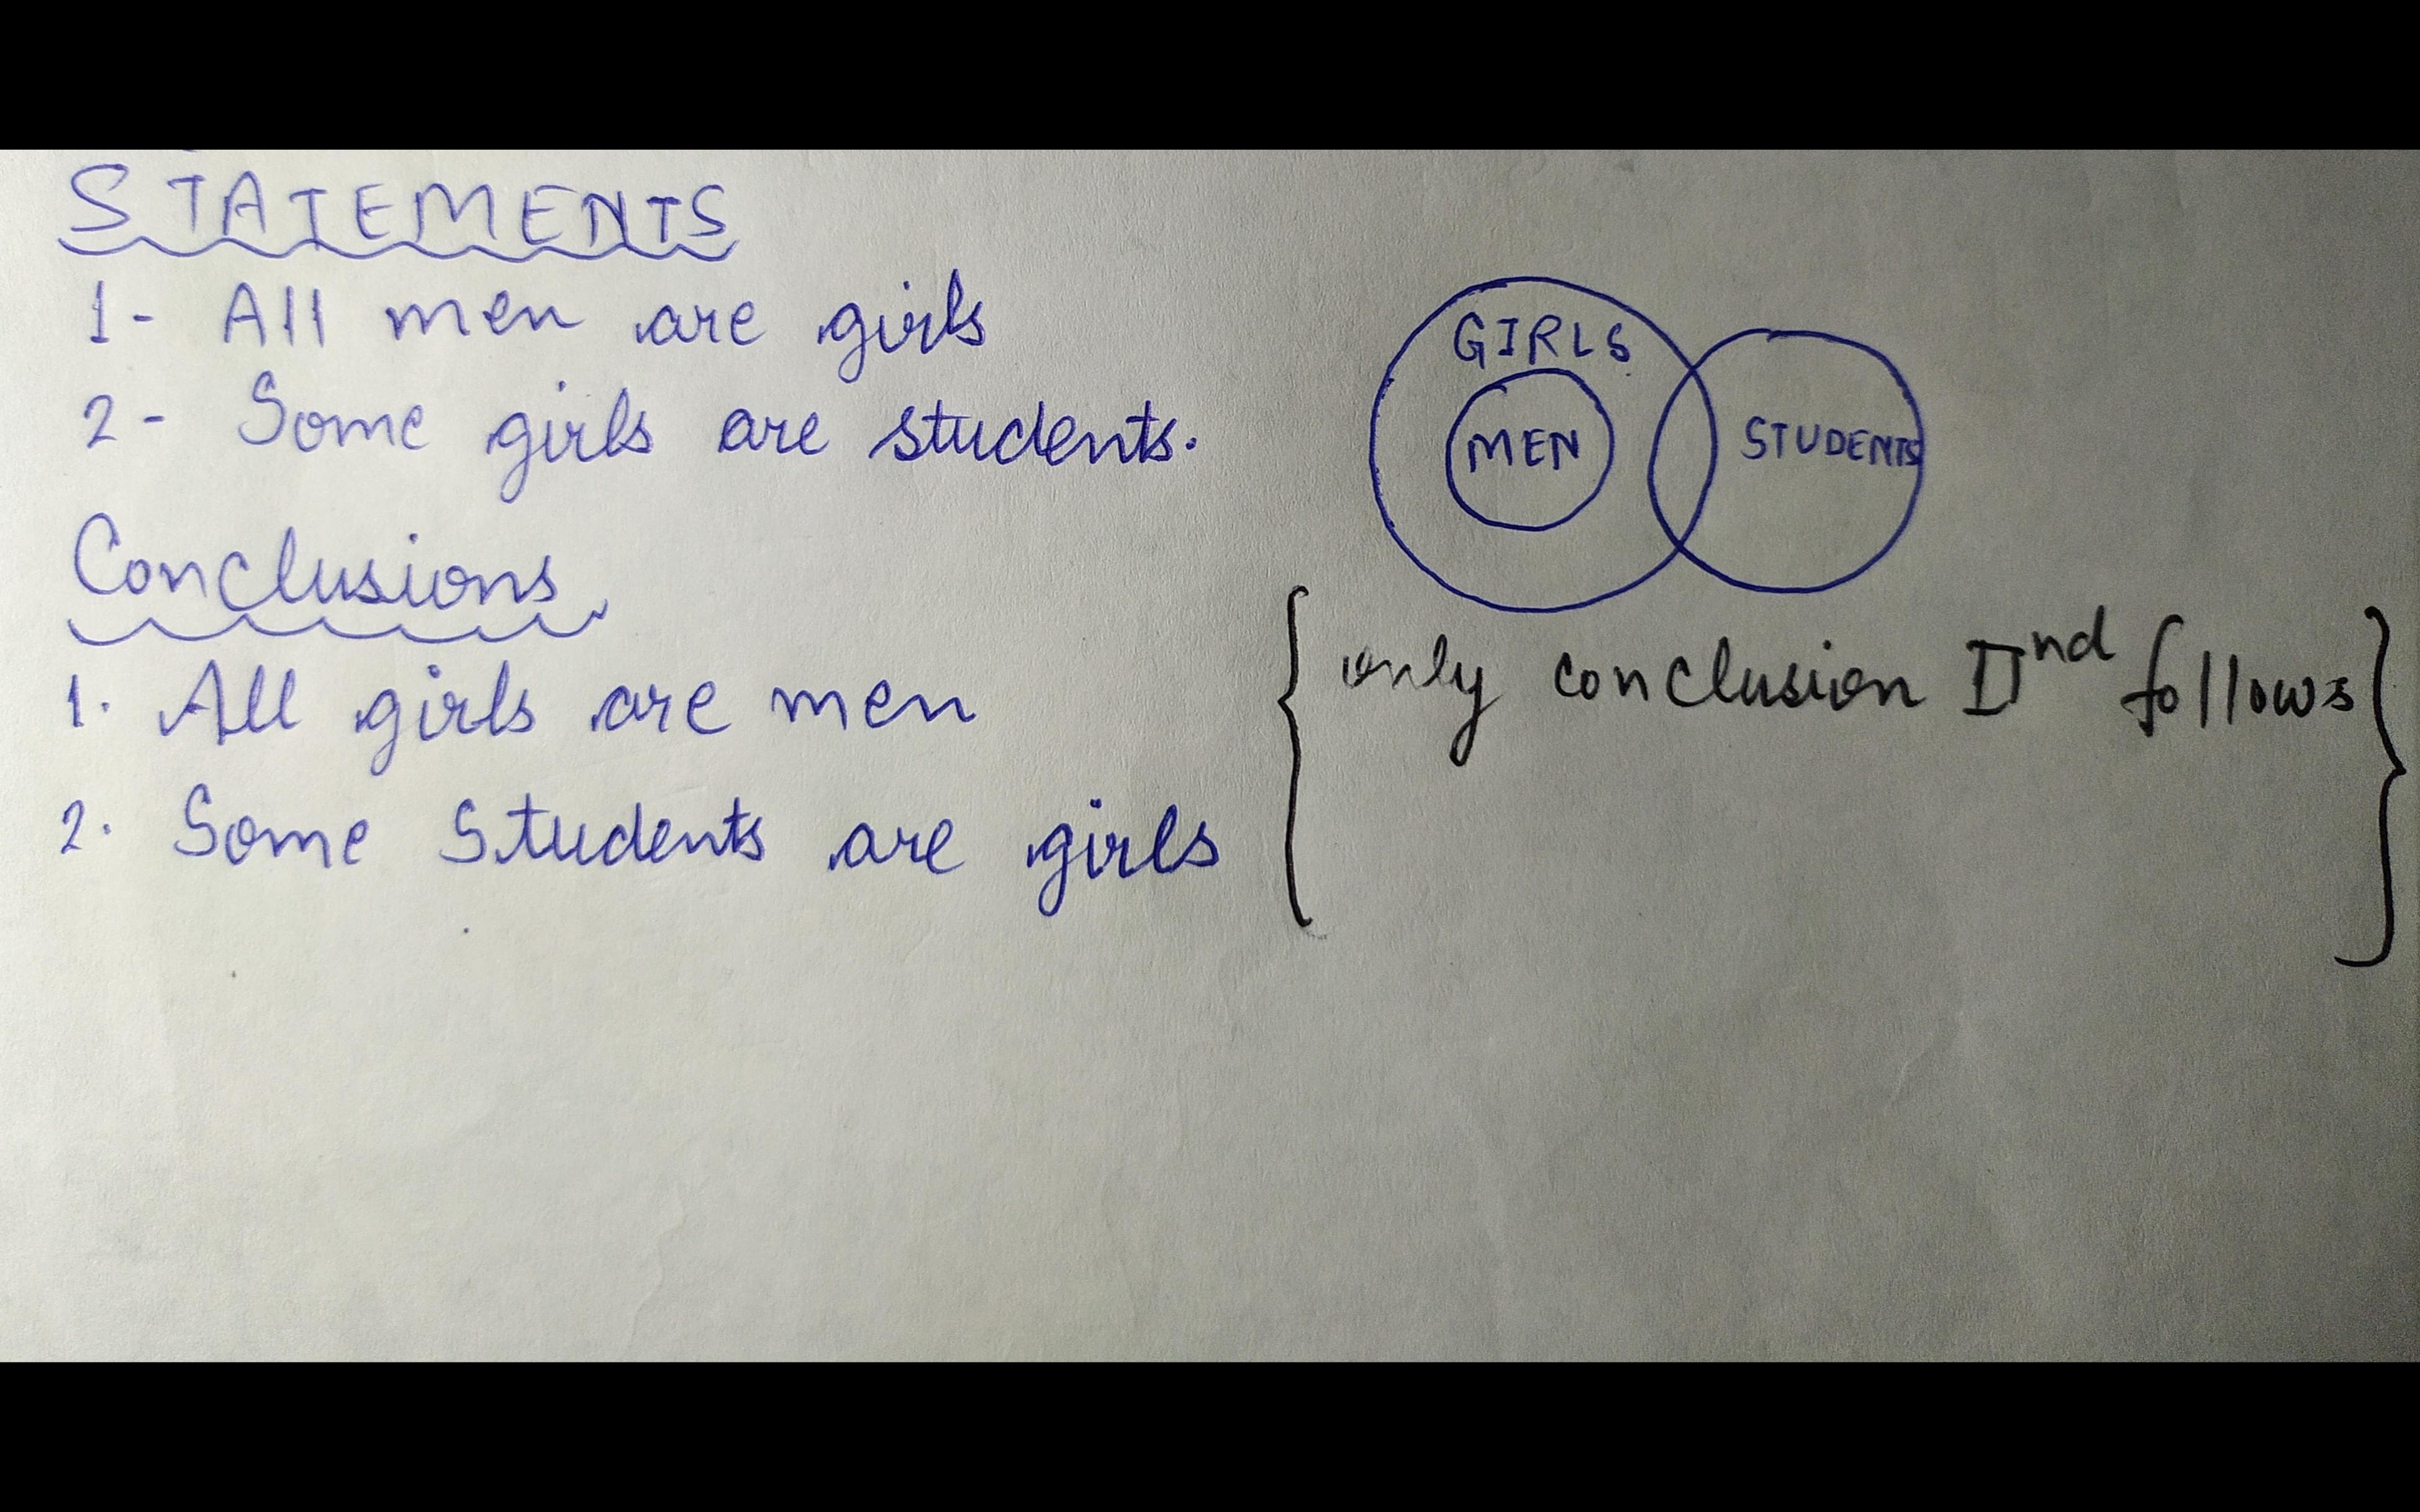 STATEMENTS
1- All men are girls
2- Some girls are students.
Conclusions
1. All girls are men
2. Some Students are girls
GIRLS
MEN
STUDENTS
{ only conclusion IInd follows }